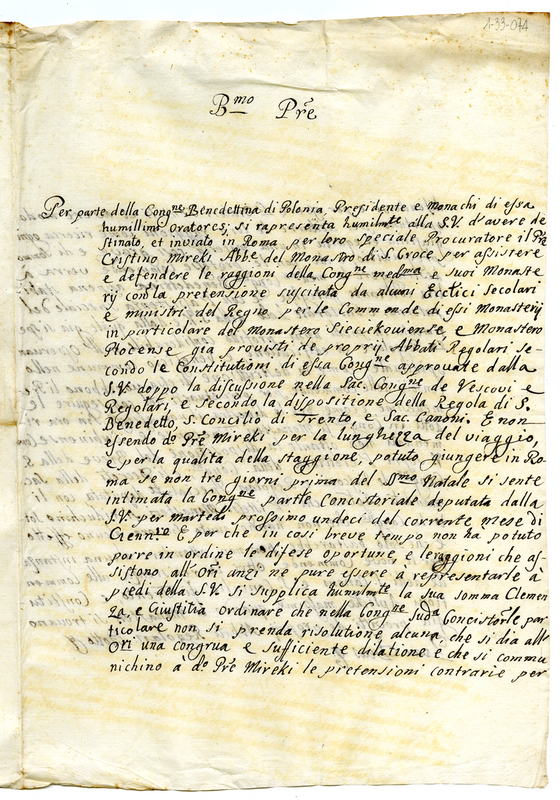 1-33-074
B.mo Pre
Per parte della Cong.ne Benedettina di Polonia Presidente e Monachi di essa
humillimi Oratores; si rapresenta humilm.te alla S.V. d'avere de
stinato, et inviato in Roma per loro speciale Procuratore il Pre
Cristino Mireki Abb.e del Monastro di S. Croce per assistere
e defendere le raggioni della Cong.ne med.ma e suoi Monaste
rij con la pretensione suscitata da alcuni Ecclici Secolari
e ministri del Regno per le Commende di essi Monasterij
in particolare del Monastero Sieciekowiense e Monastero
Plocense gia provisti de proprij Abbati Regolari se-
condo le Constitutioni di essa Cong.ne approvate dalla
S.V. doppo la discussione nella Sac. Cong.ne de Vescovi e
Regolari e secondo la dispositione della Regola di S.
Benedetto, S. Concilio di Trento, e Sac. Canoni. E non
essendo d.o Pre Mireki per la lunghezza del viaggio,
e per la qualita della staggione, potuto giungere in Ro-
ma se non tre giorni prima del SS.mo Natale si sente
intimata la Cong.ne part.le Concistoriale deputata dalla
S.V. per Martedi prossimo undeci del corrente mese di
Genn.ro E per che in cosi breve tempo non ha potuto
porre in ordine le difese oportune, e le raggioni che as-
sistono all' Ori anzi ne pure essere à representarle à
piedi della S.V. si supplica humilm.te la sua somma Clemen
za, e Giustitia ordinare che nella Cong.ne sud.a Concistorle par
ticolare non si prenda risolutione alcuna, che si dia all'
Ori una congrua e sufficiente dilatione e che si commu
nichino à d.o Pre Mireki le pretensioni contrarie per